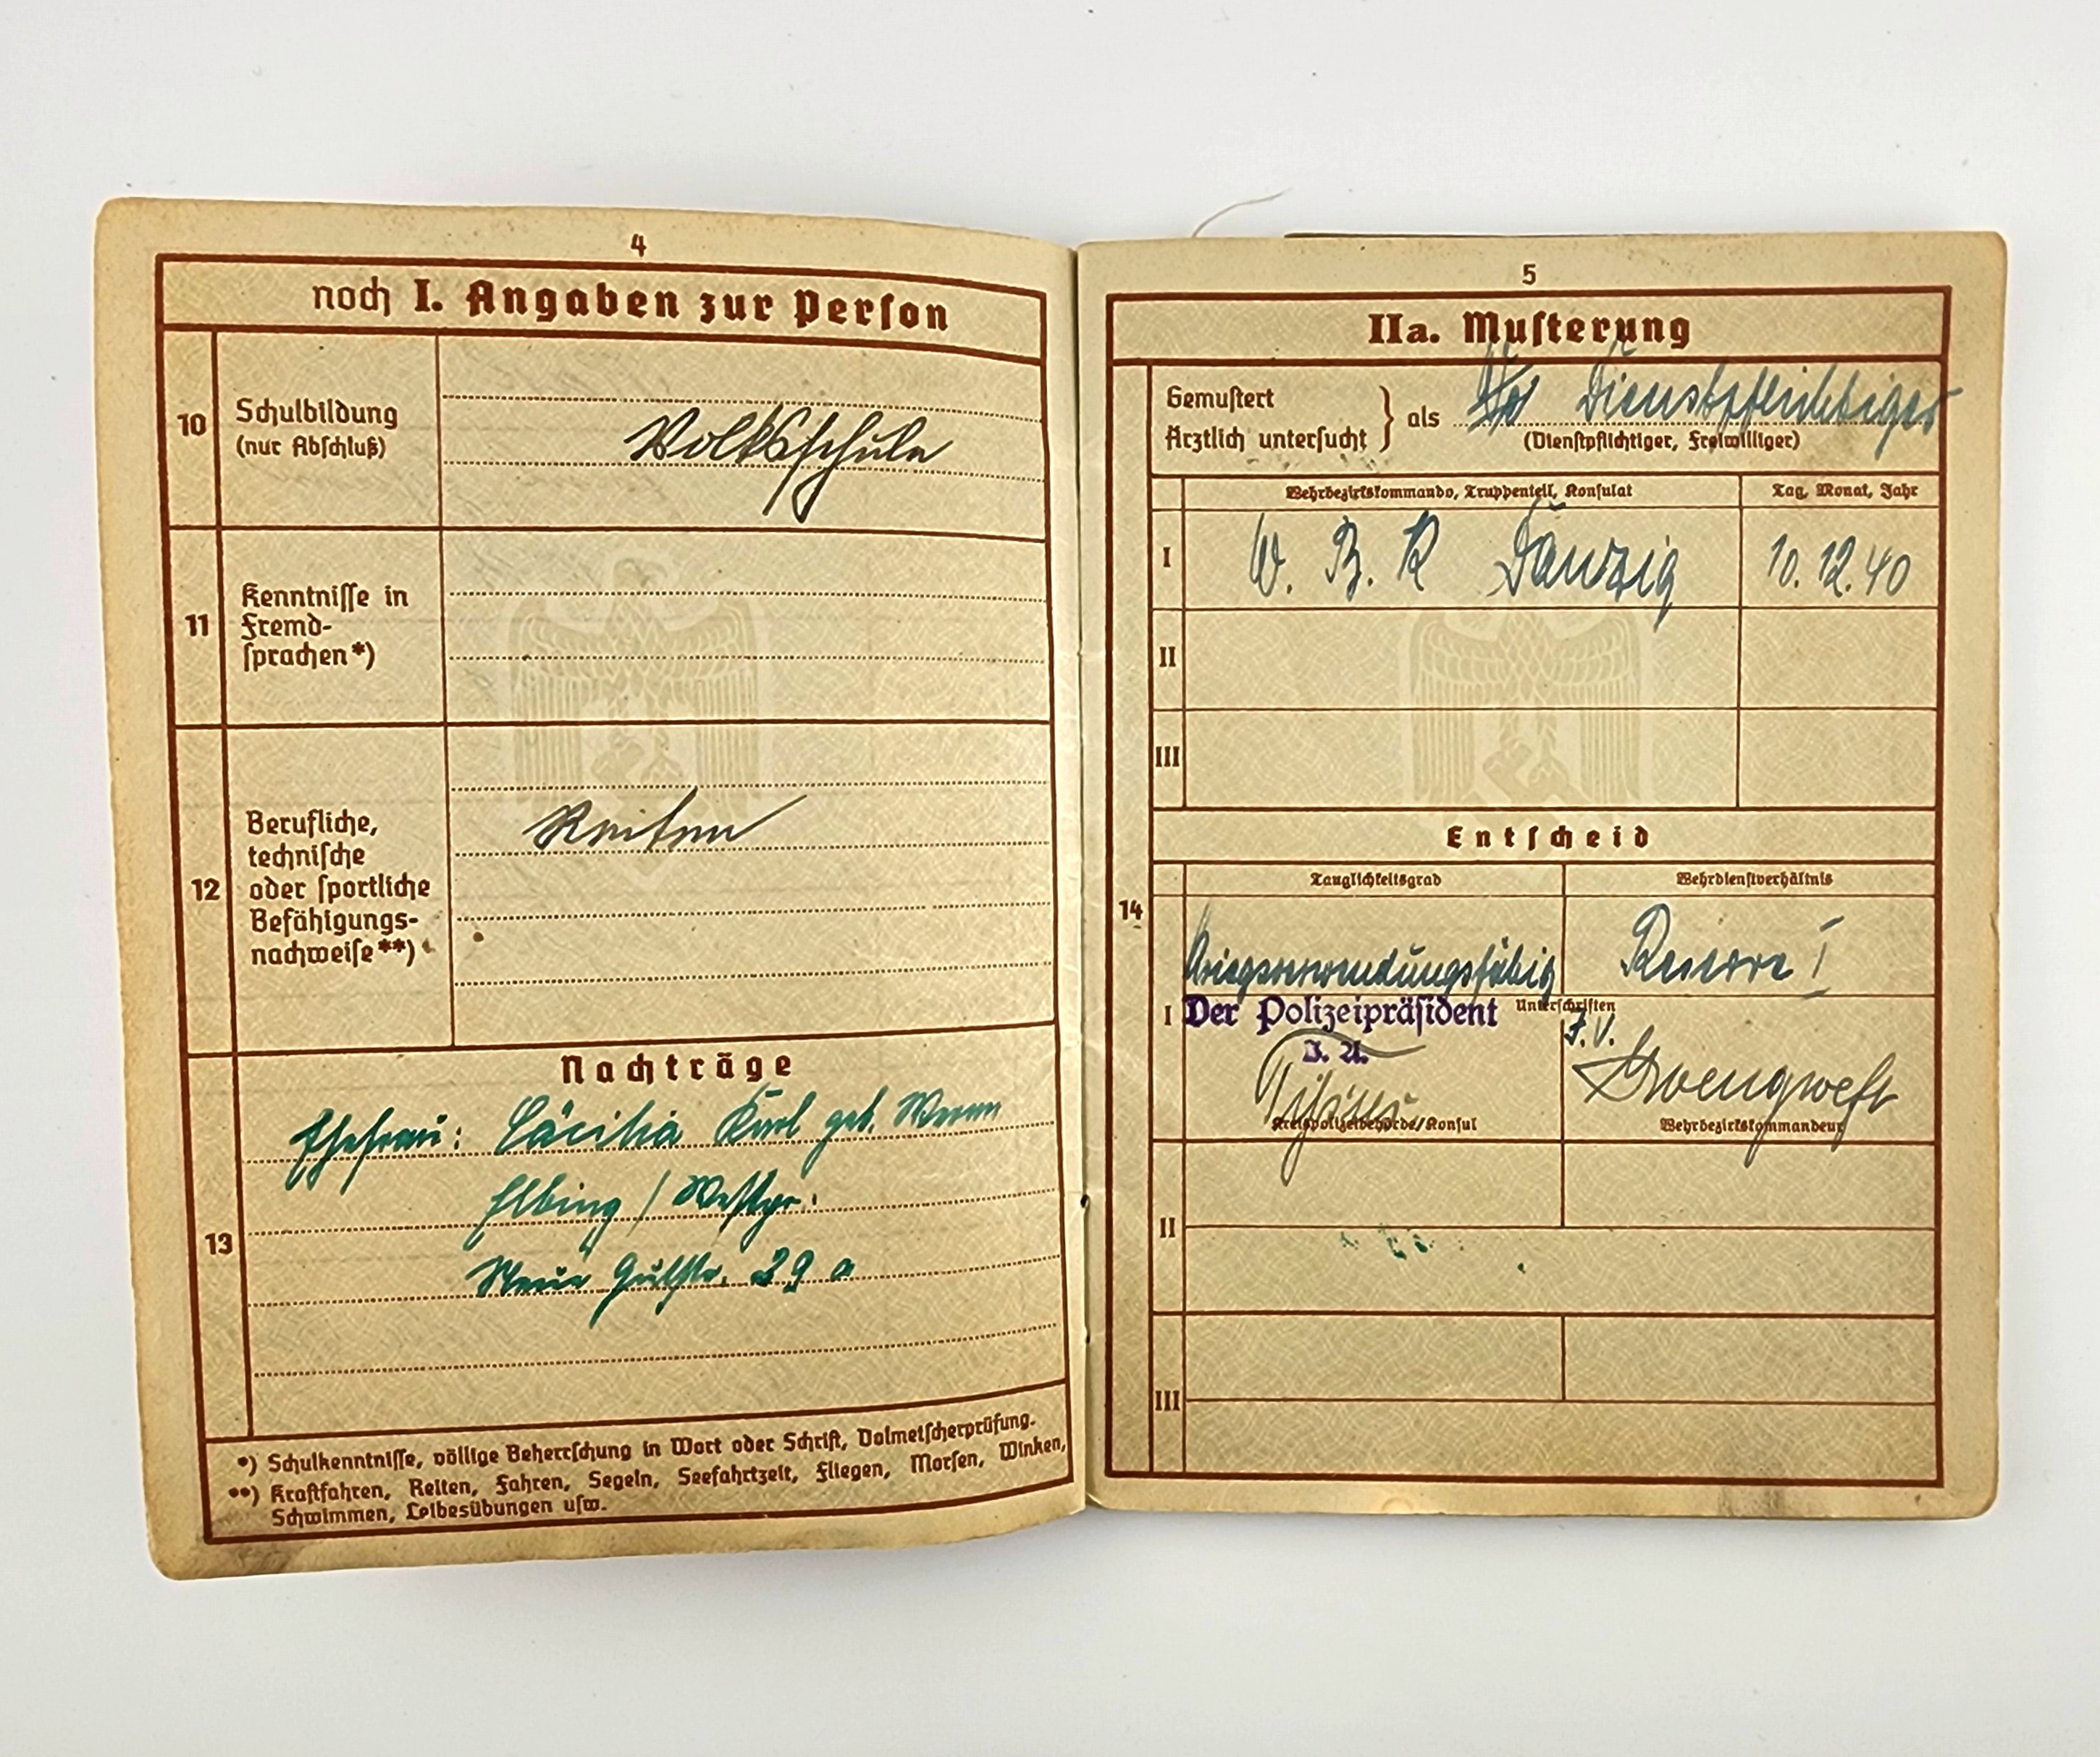 4
noch I. Angaben zur Person
10
Schulbildung
(nur Abschluß)
Volksschule
11
Kenntnisse in
Fremd-
sprachen*)
12
Berufliche,
technische
oder sportliche
Befähigungs-
nachweise**)
Reiten
13
Nachträge
Ehefrau: Cäcilia Karl geb.
Elbing / Westpr.
Neue Gutstr. 29 a
*) Schulkenntnisse, völlige Beherrschung in Wort oder Schrift, Dolmetscherprüfung.
**) Kraftfahren, Reiten, Fahren, Segeln, Seefahrtzeit, Fliegen, Morsen, Winken,
Schwimmen, Leibesübungen usw.
5
IIa. Musterung
14
Gemustert
Ärztlich untersucht
als
Dienstpflichtiger
(Dienstpflichtiger, Freiwilliger)
Wehrbezirkskommando, Truppenteil, Konsulat
Tag, Monat, Jahr
I
W. B. K Danzig
10.12.40
II
III
Entscheid
Tauglichkeitsgrad
Wehrdienstverhältnis
Kriegsverwendungsfähig
Reserve I
I
Der Polizeipräsident
Unterschriften
I. A.
J. V.
Kreispolizeibehörde/Konsul
Wehrbezirkskommandeur
II
III